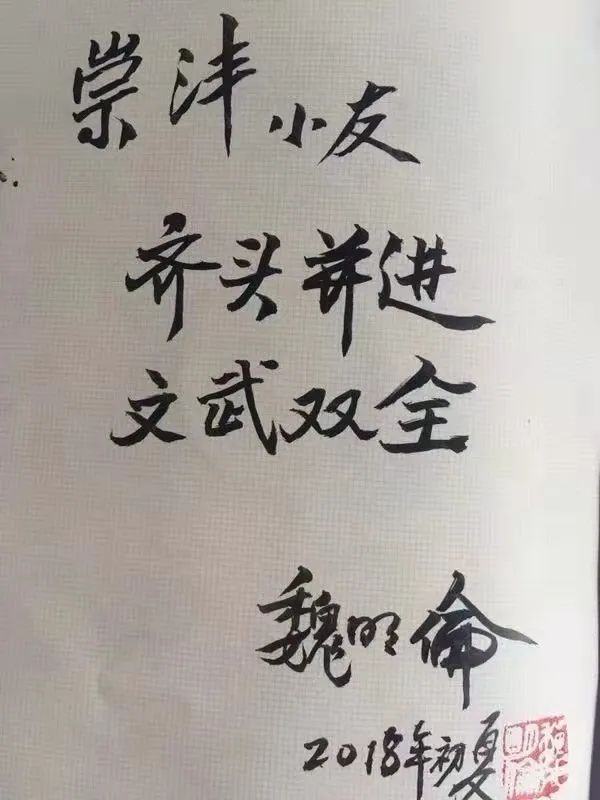 崇沣小友
齐头并进
文武双全
魏明倫
2018年初夏
魏明倫